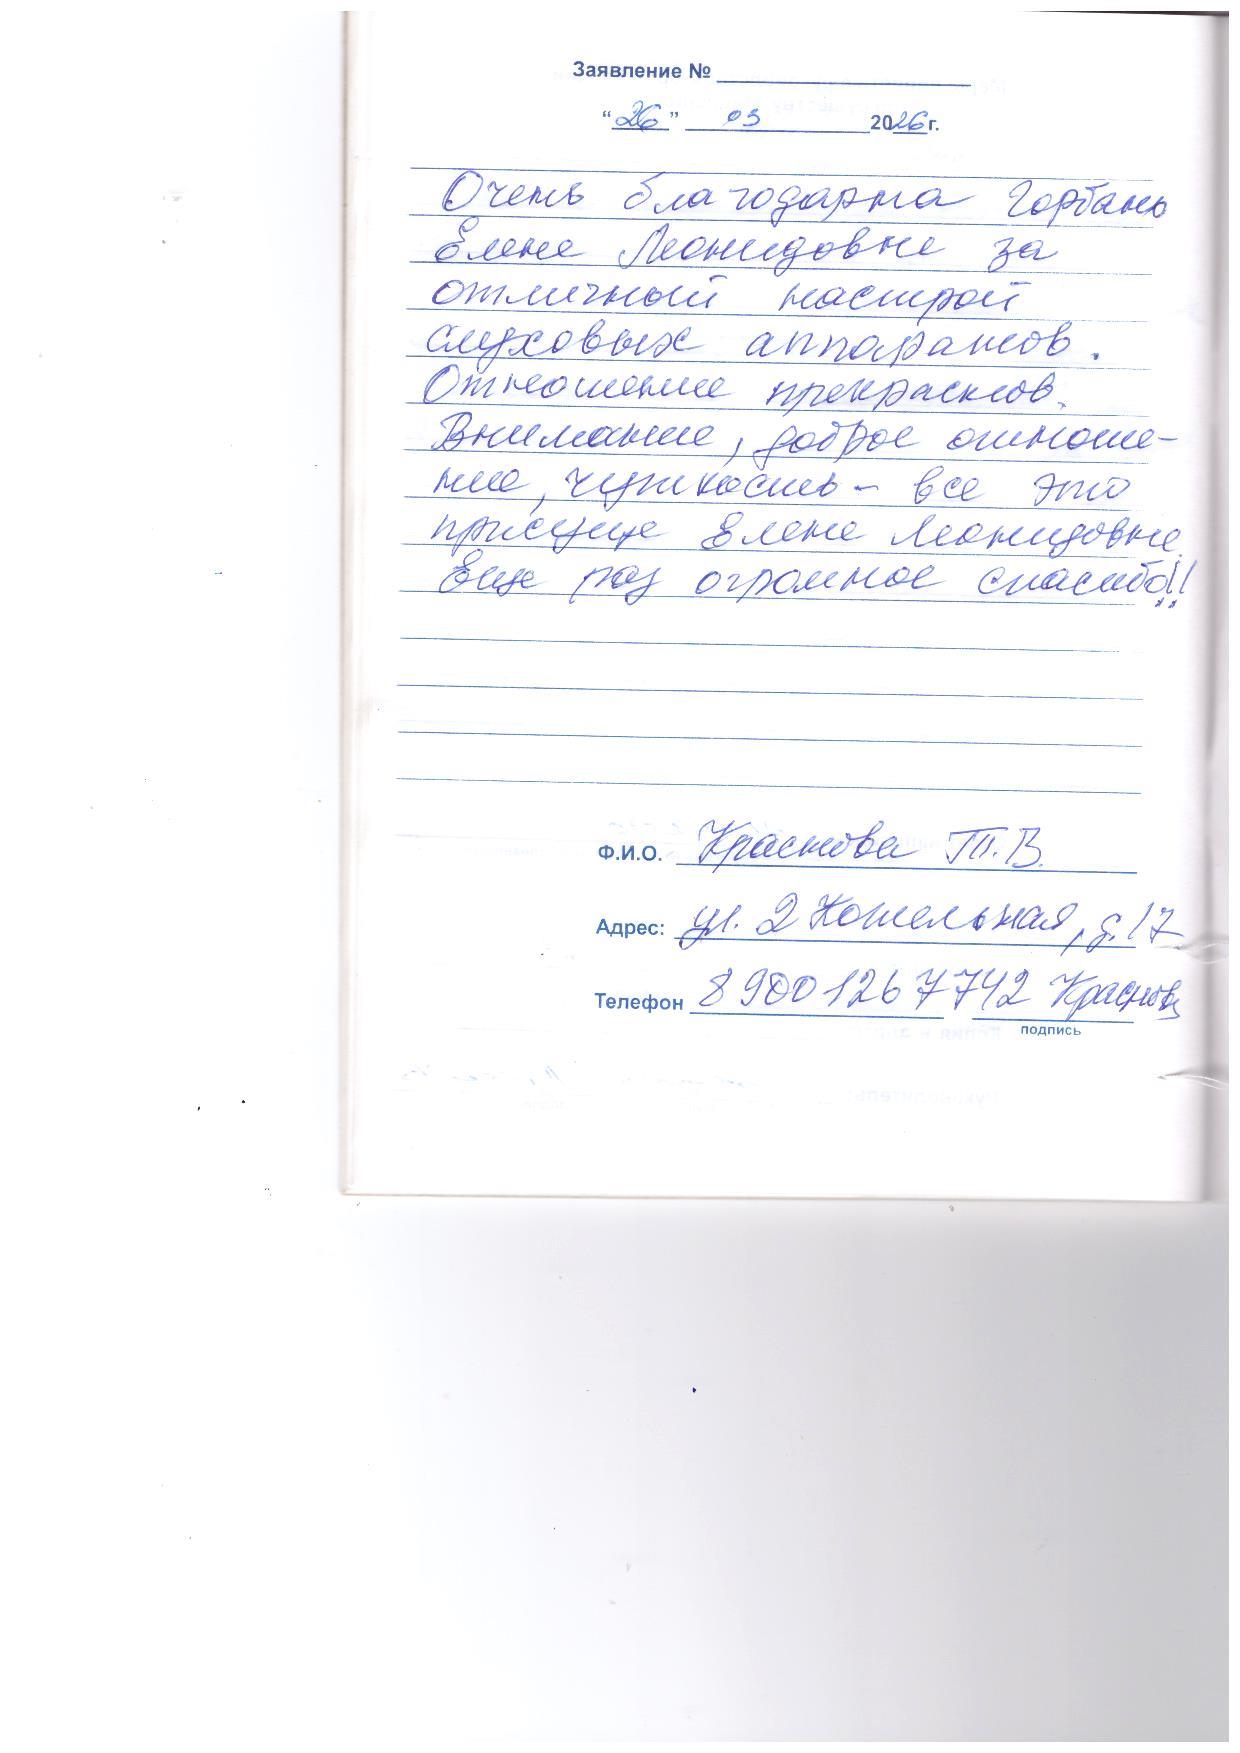 Заявление №
“26” 03 2026 г.
Очень благодарна Горбань
Елене Леонидовне за
отличный настрой
слуховых аппаратов.
Отношение прекрасное.
Внимание, доброе отноше-
ние, чуткость - все это
присуще Елене Леонидовне.
Еще раз огромное спасибо!!
Ф.И.О. Краснова Т.В.
Адрес: ул. 2 Котельная, д. 17
Телефон 89001267742 Краснова
подпись